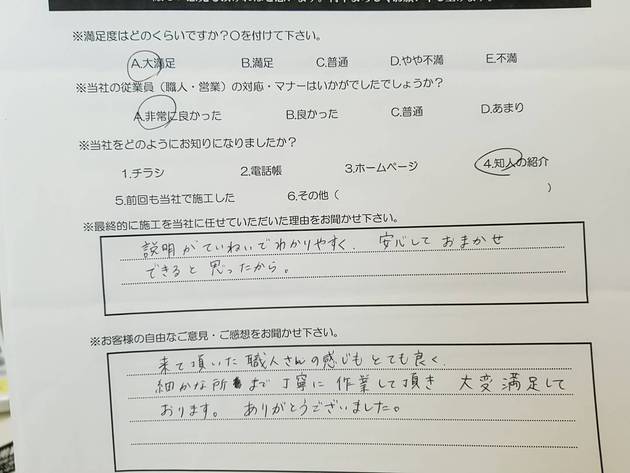 ※満足度はどのくらいですか?〇を付けて下さい。
A.大満足 B.満足 C.普通 D.やや不満 E.不満
※当社の従業員(職人・営業)の対応・マナーはいかがでしたでしょうか?
A.非常に良かった B.良かった C.普通 D.あまり
※当社をどのようにお知りになりましたか?
1.チラシ 2.電話帳 3.ホームページ 4.知人の紹介
5.前回も当社で施工した 6.その他( )
※最終的に施工を当社に任せていただいた理由をお聞かせ下さい。
説明がていねいでわかりやすく、安心しておまかせ
できると思ったから。
※お客様の自由なご意見・ご感想をお聞かせ下さい。
来て頂いた職人さんの感じもとても良く、
細かな所まで丁寧に作業して頂き 大変満足して
おります。ありがとうございました。